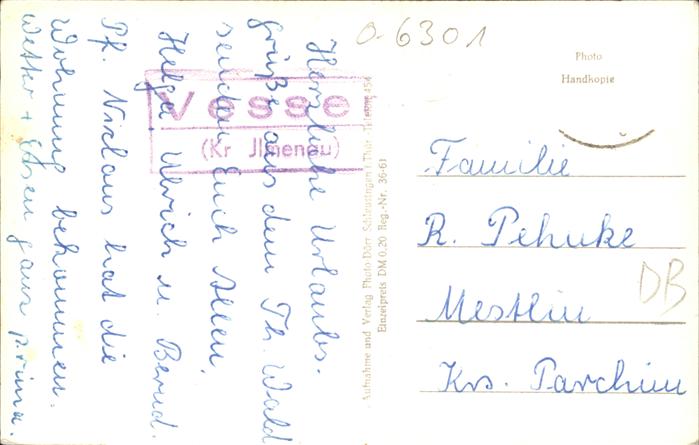 Herzliche Urlaubs-
grüße aus dem Th. Wald
senden Euch Allen,
Helga Ulrich u. Bernd.
Pf. Niclaus hat die
Wohnung bekommen.
Wetter + Essen ganz prima.
Vesser
(Kr Jlmenau)
Aufnahme und Verlag Photo-Dörr Schleusingen i. Thür. Telefon 454
Einzelpreis DM 0.20 Reg.-Nr. 36-61
0-6301
Photo
Handkopie
Familie
R. Pehnke
Mestlin
Krs. Parchim
DB